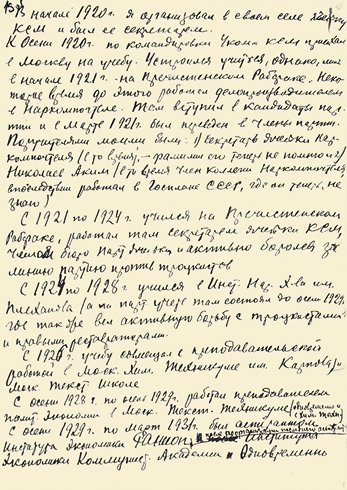 В начале 1920г. я организовал в своем селе ячейку
КСМ и был ее секретарем.
К осени 1920г. по командировке Укома КСМ приехал
в Москву на учебу. Устроился учиться, однако, лишь
в начале 1921г. - на Пречистенском Рабфаке. Неко-
торое время до этого работал делопроизводителем
в Наркомпочтеле. Там вступил в кандидаты пар-
тии и в марте 1921г. был переведен в члены партии.
Поручителями моими были: 1) секретарь ячейки нар-
компочтеля (его взял, - фамилии его теперь не помню) и 2)
Николаев Аким (в то время член коллегии Наркомпочтеля
впоследствии работал в Госплане СССР, где он теперь, не
знаю)
С 1921 по 1924г учился на Пречистенском
Рабфаке, работал там секретарем ячейки КСМ,
членом бюро парт ячейки и активно боролся за
линию партии против троцкистов
С 1924 по 1928г учился в Инст. Нар. Х-ва им.
Плеханова (а на парт учете там состоял до осени 1929г.
где также вел активную борьбу с троцкистами
и правыми реставраторами.
С 1926г учебу совмещал с преподавательской
работой в Моск. Хим. Техникуме им. Карпова и
Моск. Текст школе
С осени 1928г. по осень 1929г. работал преподавателем
полит экономии в Моск. Текст. Техникуме
С осени 1929г. по март 1931г. был аспирантом
Института Экономики РАНИОН, Института
Экономики Коммунист. Академии. Одновременно